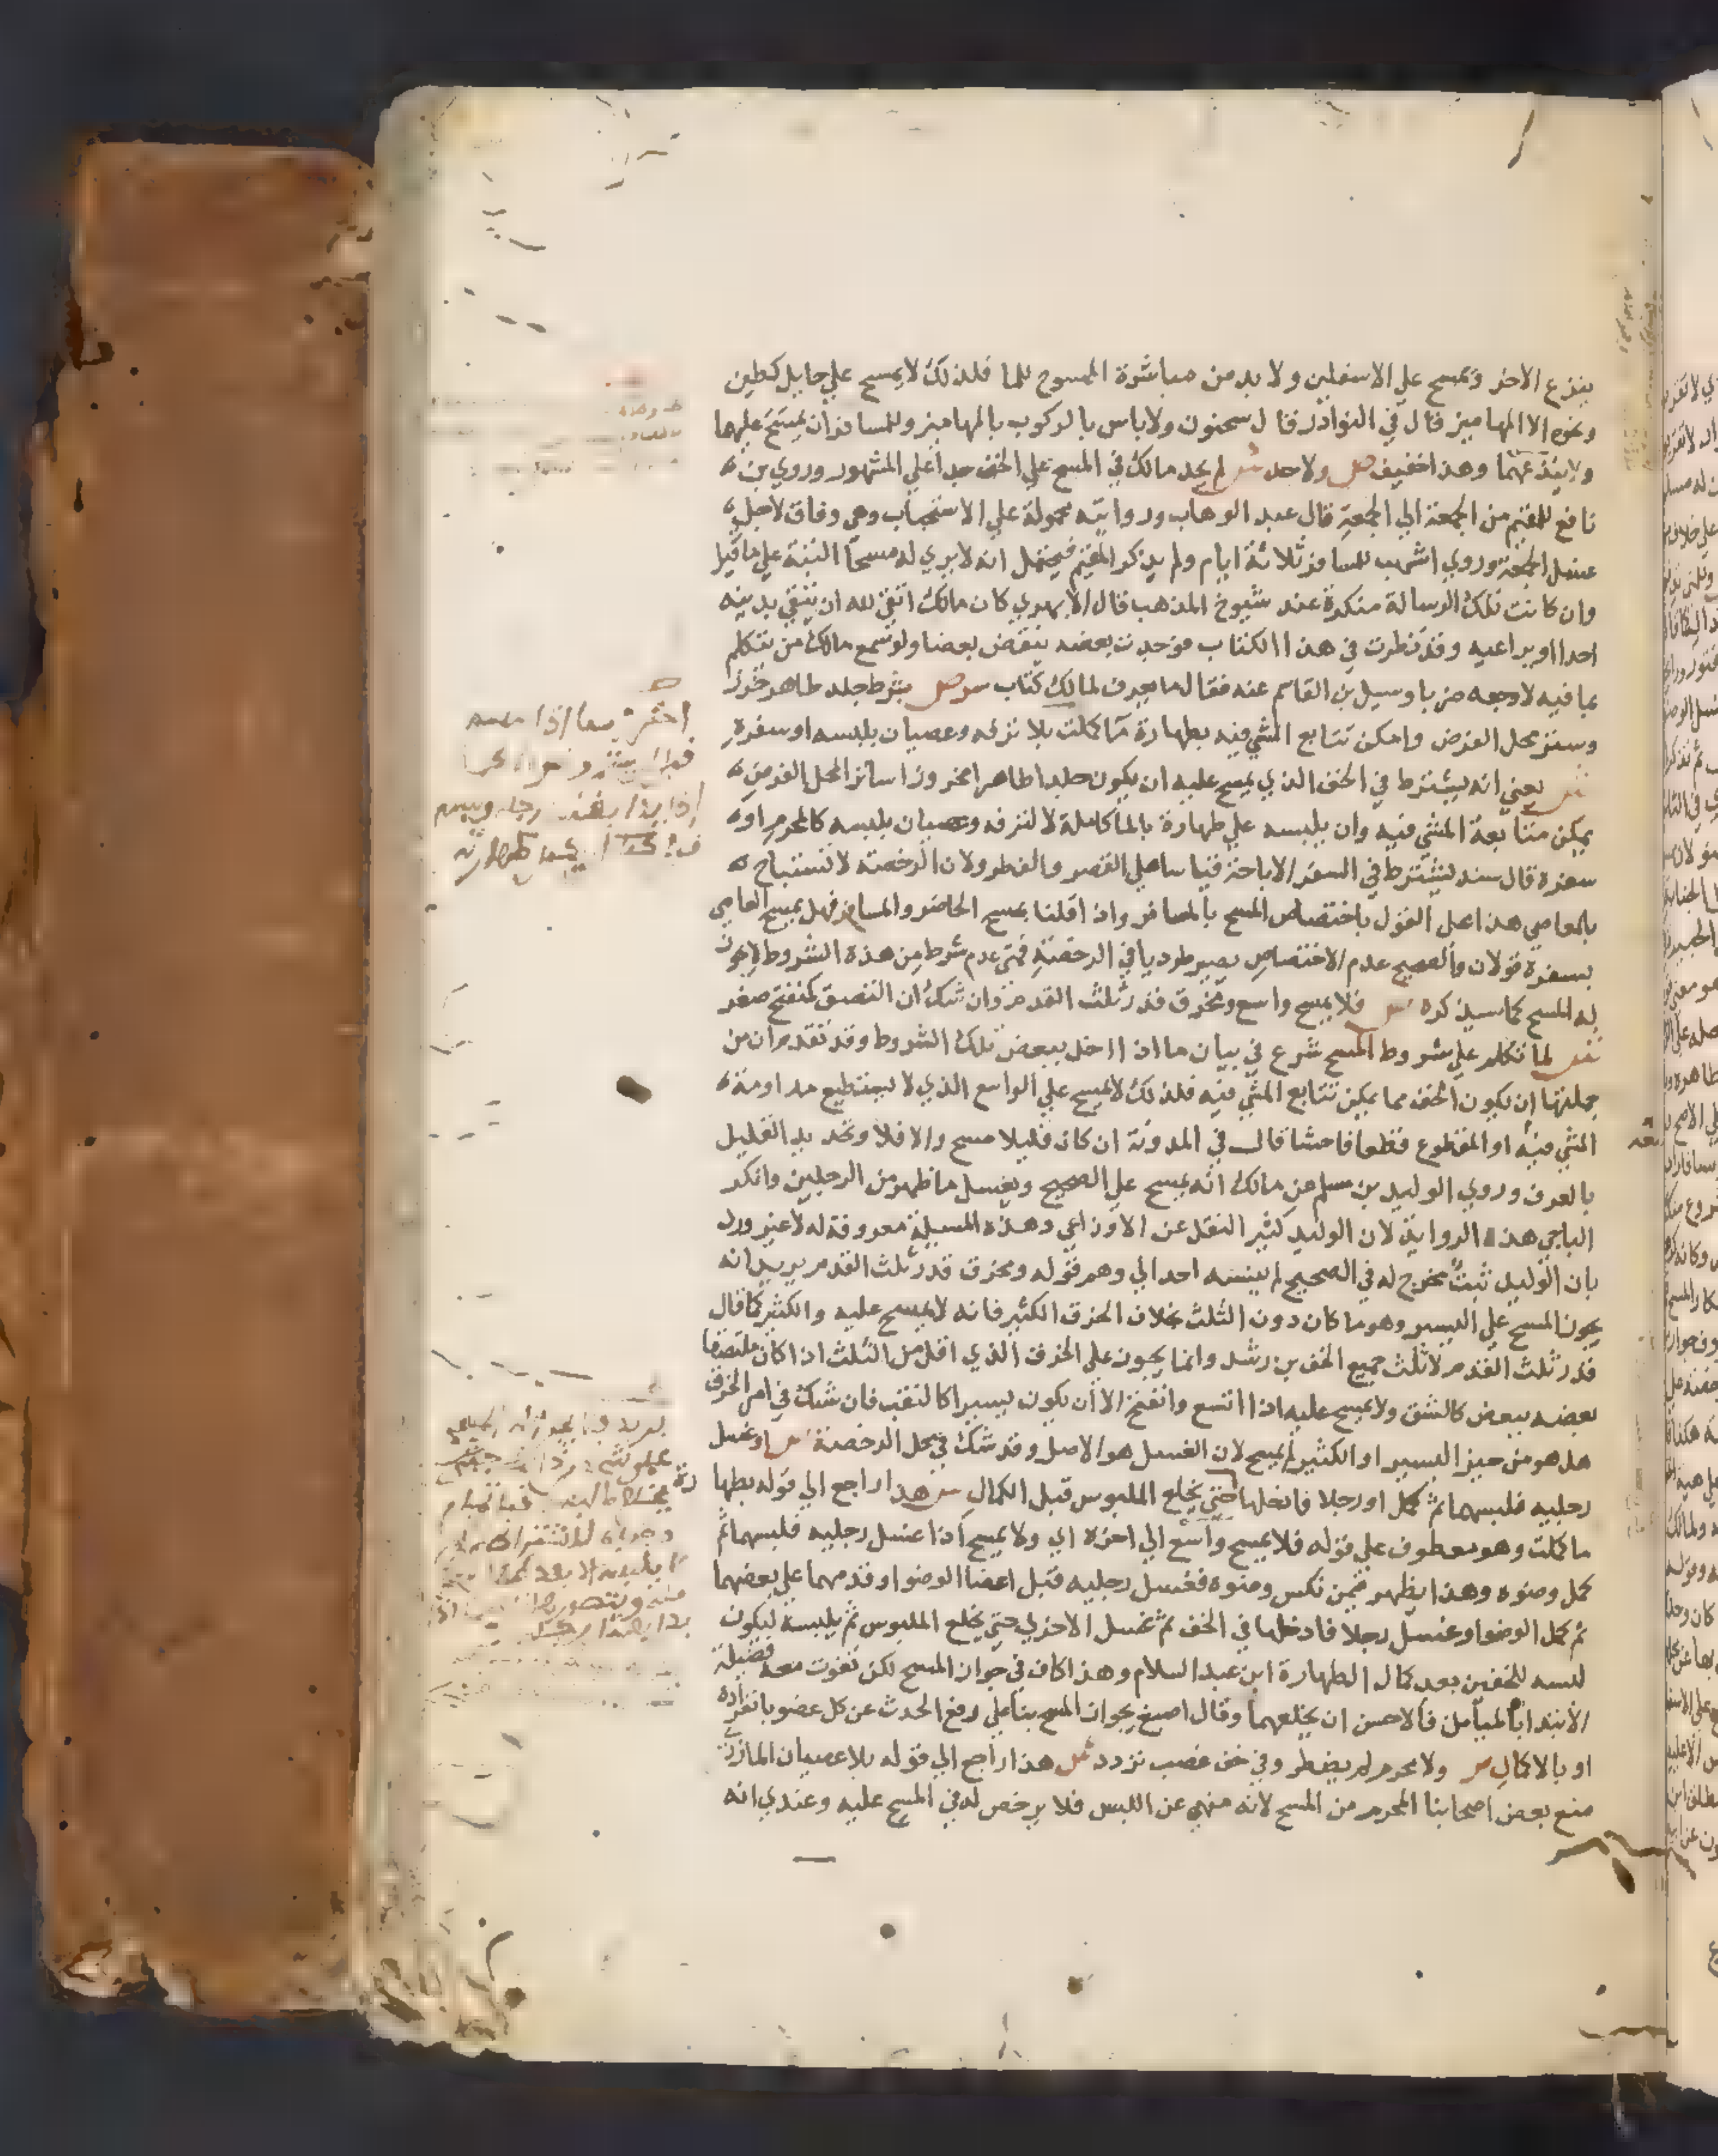 ينزع الاخر ويمسح علي الاسفلين ولا بد من مباشرة الممسوح للما فلذلك لا يمسح علي حايل كطين
ونحوه الا المهاميز قال في النوادر قال سحنون ولا باس بالركوب بالمهاميز وللمسافر ان يمسح عليهما
ولا ينزعهما وهذا خفيف ص ولا حد ش لم يحد مالك في المسح علي الخف حدا علي المشهور وروي بن
نافع للمقيم من الجمعة الي الجمعة قال عبد الوهاب وروايته محمولة علي الاستحباب وهي وفاق لاجل
غسل الجمعة وروي اشهب للمسافر ثلاثة ايام ولم يذكر المقيم فيحتمل انه لا يري له مسحا البتة علي ما قيل
وان كانت تلك الرسالة منكرة عند شيوخ المذهب قال الابهري كان مالك اتقي لله ان يتقي بدينه
احدا او يراعيه وقد نظرت في هذا الكتاب فوجدت بعضه ينقض بعضا ولو سمع مالك من يتكلم
بما فيه لاوجعه ضربا وسيل بن القاسم عنه فقال ما يعرف لمالك كتاب سر ص بشرط جلد طاهر خرز
وستر محل الفرض وامكن تتابع المشي فيه بطهارة ما كملت بلا ترفه وعصيان بلبسه او سفره
ش يعني انه يشترط في الخف الذي يمسح عليه ان يكون جلدا طاهرا مخروزا ساتر المحل الفرض
يمكن متابعة المشي فيه وان يلبسه علي طهارة بالما كاملة لا لترفه وعصيان بلبسه كالمحرم او
سفره قال سند يشترط في السفر الاباحة قياسا علي القصر والفطر ولان الرخصة لا تستباح
بالمعاصي هذا علي القول باختصاص المسح بالمسافر واذا قلنا يمسح الحاضر والمسافر فهل يمسح العاصي
بسفره قولان والصحيح عدم الاختصاص يصير طرديا في الرخصة فمتي عدم شرط من هذه الشروط لا يجوز
له المسح كما سيذكره ص فلا يمسح واسع ومخرق قدر ثلث القدم وان شك ان التصق كمنفتح صغر
ش لما تكلم علي شروط المسح شرع في بيان ما اذا اخل ببعض تلك الشروط وقد تقدم ان من
جملتها ان يكون الخف مما يمكن تتابع المشي فيه فلذلك لا يمسح علي الواسع الذي لا يستطيع مداومة
المشي فيه او المقطوع قطعا فاحشا قال في المدونة ان كان قليلا مسح والا فلا وتحديد القليل
بالعرف وروي الوليد بن مسلم عن مالك انه يمسح علي الصحيح ويغسل ما ظهر من الرجلين وانكر
الباجي هذه الرواية لان الوليد كثير النقل عن الاوزاعي وهذه المسيلة معروفة له لا غير ورد
بان الوليد ثبت مخرج له في الصحيح لم ينسبه احد الي وهم قوله ومخرق قدر ثلث القدم يريد انه
يجوز المسح علي اليسير وهو ما كان دون الثلث بخلاف الخرق الكثير فانه لا يمسح عليه والكثير كما قال
قدر ثلث القدم لا ثلث جميع الخف بن رشد وانما يجوز علي الخرق الذي اقل من الثلث اذا كان ملتصقا
بعضه ببعض كالشق ولا يمسح عليه اذا اتسع وانفتح الا ان يكون يسيرا كالثقب فان شك في امر الخرق
هل هو من حيز اليسير او الكثير لم يمسح لان الغسل هو الاصل وقد شك في محل الرخصة ص او غسل
رجليه فلبسهما ثم كمل او رجلا فادخلها حتي يخلع الملبوس قبل الكمال ش هذا راجع الي قوله بطها
رة
ما كملت وهو معطوف علي قوله فلا يمسح واسع الي اخره اي ولا يمسح اذا غسل رجليه فلبسهما ثم
كمل وضوه وهذا يظهر فيمن نكس وضوه فغسل رجليه قبل اعضا الوضو او قدمهما علي بعضهما
ثم كمل الوضو او غسل رجلا فادخلها في الخف ثم غسل الاخري حتي يخلع الملبوس ثم يلبسه ليكون
لبسه للخفين بعد كمال الطهارة ابن عبد السلام وهذا كاف في جواز المسح لكن تفوت معه فضيلة
الابتدا بالميامن فالاحسن ان يخلعهما وقال اصبغ يجوز المسح بنا علي رفع الحدث عن كل عضو بانفراده
او بالاكمال ص ولا محرم لم يضطر وفي خف غصب تردد ش هذا راجع الي قوله بلا عصيان المازري
منع بعض اصحابنا المحرم من المسح لانه منهي عن اللبس فلا يرخص له في المسح عليه وعندي انه